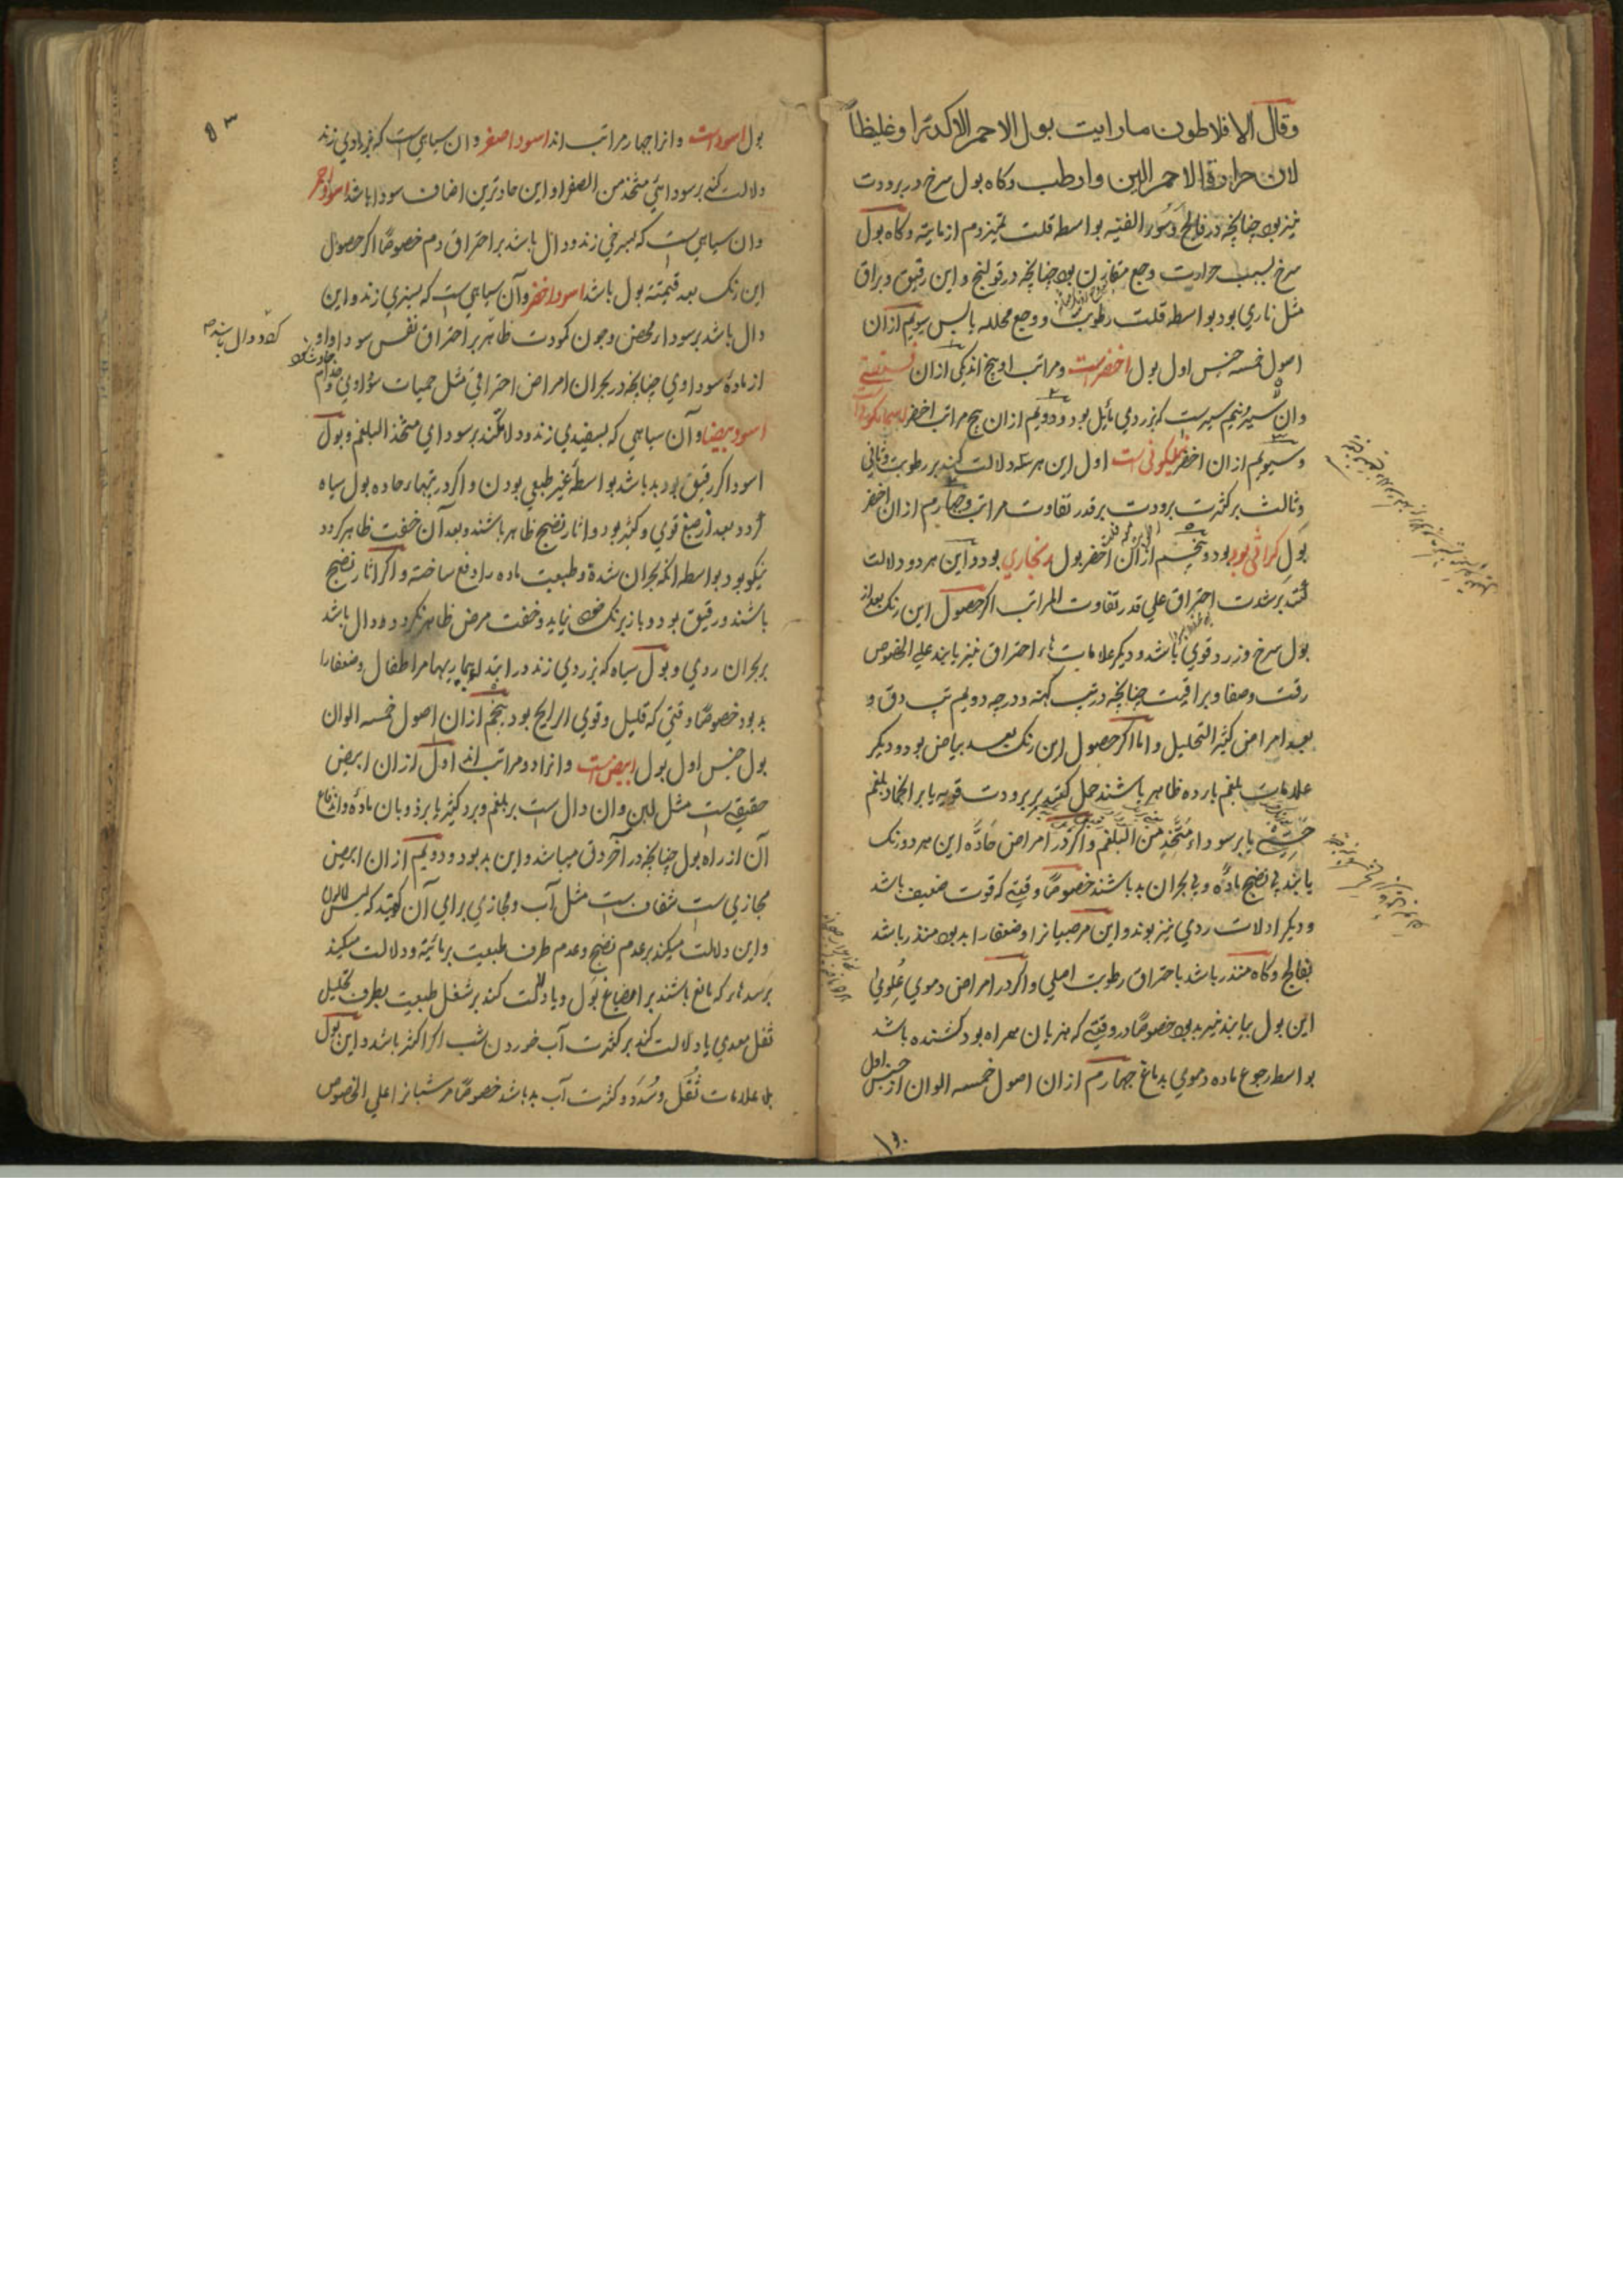 وقال الافلاطون ما رایت بول الاحمر الا کدرًا وغلیظًا
لان حرارة الاحمر الین وارطب وکاه بول سرخ در برودت
نیز بود چنانچه در فالج وسوء القنیه بواسطه قلت تمیز دم از مائیة وکاه بول
سرخ بسبب حرارت وجع مقارن بود چنانچه در قولنج و این رقیق و براق
مثل ناری بود بواسطه قلت رطوبت و وجع محلله یابس سیوم ازان
اصول خمسه جنس اول بول اخضرست ومراتب او پنج اند یکی ازان فستقی
وان سبزنیم سیرست که بزردی مائل بود ودویم ازان پنج مراتب اخضر اسمانکونی
وسیوم ازان اخضر نیلکونی است اول این هر سه دلالت کنند بر رطوبت وثانی
وثالث بر کثرت برودت بر قدر تفاوت مراتب وچهارم ازان اخضر
بول کراثی بود بود وپنجم ازان اخضر بول زنجاری بود واین هر دو دلالت
کنند بر شدت احتراق علی قدر تفاوت المراتب اکر حصول این رنک بعد از
بول سرخ وزرد قوی باشد ودیکر علامات احتراق نیز یابند علی الخصوص
رقت وصفا وبراقیت چنانچه در تب کهنه ودرجه دویم تپ دق و
بعد امراض کثیر التحلیل واما اکر حصول این رنک بعد بیاض بود ودیکر
علامات بلغم بارده ظاهر باشند حمل کنند بر برودت قویه یا بر انجماد بلغم
یا بر سوداء متخذ من البلغم واکر در امراض حادّه این هر دو رنک
یابند بی نضج مادّه وبی بحران بد باشند خصوصًا وقتی که قوت ضعیف باشد
ودیکر ادلات ردی نیز بوند واین مر صبیانرا وضعفا را بد بود منذر باشد
بفالج وکاه منذر باشد باحتراق رطوبت اصلی واکر در امراض دموی عُلوی
این بول بیایند نیز بد بود خصوصًا در وقتی که هزیان همراه بود کشنده باشد
بواسطه رجوع ماده دموی بدماغ چهارم ازان اصول خمسه الوان از جنس اول
بول اسوداست وانرا چهار مراتب اند اسود اصفر وان سیاهی است که بزردی زند
دلالت کند بر سودائی متخذ من الصفرا واین حادترین اصناف سودا باشد اسود احمر
وان سیاهی است که بسرخی زند ودال باشد بر احتراق دم خصوصًا اکر حصول
این رنک بعد قیمتنه بول باشد اسود اخضر وآن سیاهی است که بسبزی زند واین
دال باشد بر سوداء محض وچون کمودت ظاهر بر احتراق نفس سودا واو
از مادهٔ سوداوی چنانچه در بحران امراض احتراقی مثل حمیات سوداوی وجذام
اسود بیضا وآن سیاهی که بسفیدی زند ودلالت کند بر سودای متخذ البلغم وبول
اسود اکر رقیق بود بد باشد بواسطه غیر طبعی بودن واکر در تبهاء حاده بول سیاه
کردد بعد از صبغ قوی وکثیر بود واثار نضج ظاهر باشند وبعد آن خفت ظاهر کردد
نیکو بود بواسطه انکه بحران شده وطبیعت ماده را دفع ساخته واکر اثار نضج
باشند ورقیق بود وباز برنک خود نیاید وخفت مرض ظاهر نکردد ودال باشد
بر بحران ردی وبول سیاه که بزردی زند در ابتداء بیماریها مر اطفال وضعفا را
بد بود خصوصًا وقتی که قلیل وقوی الرایح بود پنجم ازان اصول خمسه الوان
بول جنس اول بول ابیض است وانرا دو مراتب اند اول ازان ابیض
حقیقی است مثل لبن وان دال است بر بلغم وبرد کثیر یا بر ذوبان مادّه واندفاع
آن از راه بول چنانچه در آخر دق میباشد واین بد بود ودویم ازان ابیض
مجازی است شفاف است مثل آب ومجازی برای آن کویند که لیس لا لون
واین دلالت میکند بر عدم نضج وعدم طرف طبیعت بر مائیه ودلالت میکند
بر سدهاء که مانع باشند بر انصباغ بول ویا دلالت کند بر شغل طبیعت بطرف تحلیل
ثفل معدی یا دلالت کند بر کثرت آب خوردن شب اکر اکثر باشد واین بول
بلا علامات ثُقَل وسُدَد وکثرت آب بد باشد خصوصًا مر شبانرا علی الخصوص